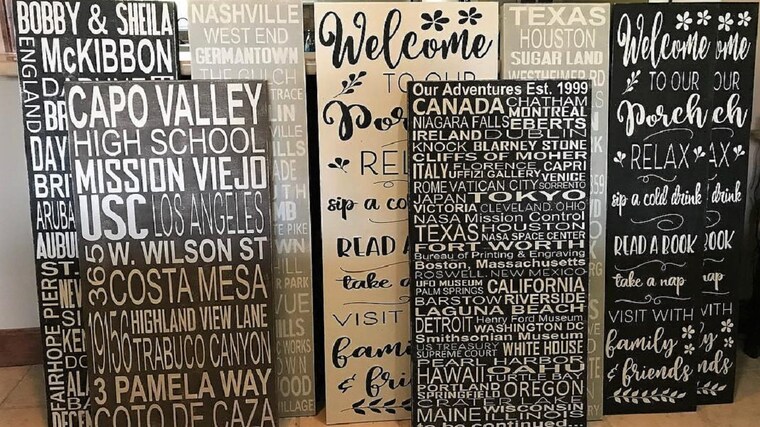 BOBBY & SHEILA
McKIBBON
ENGLAND
DAY
ARUBA
FAIRHOPE PIER
CAPO VALLEY
HIGH SCHOOL
MISSION VIEJO
USC LOS ANGELES
365 W. WILSON ST
COSTA MESA
HIGHLAND VIEW LANE
TRABUCO CANYON
3 PAMELA WAY
COTO DE CAZA
NASHVILLE
WEST END
GERMANTOWN
THE GULCH
Welcome
TO OUR
Por
REL
sip a co
READ A
take a
VISIT
fami
& fri
Our Adventures Est. 1999
CANADA CHATHAM
MONTREAL
NIAGARA FALLS EBERTS
IRELAND DUBLIN
KNOCK BLARNEY STONE
CLIFFS OF MOHER
ITALY FLORENCE CAPRI
UFFIZI GALLERY VENICE
ROME VATICAN CITY SORRENTO
JAPAN TOKYO
VICTORIA CLEVELAND OHIO
NASA Mission Control
TEXAS HOUSTON
NASA SPACE CENTER
FORT WORTH
Bureau of Printing & Engraving
Boston, Massachusetts
ROSWELL NEW MEXICO
UFO MUSEUM CALIFORNIA
PALM SPRINGS
BARSTOW RIVERSIDE
LAGUNA BEACH
DETROIT Henry Ford Museum
WASHINGTON DC
Smithsonian Museum
US TREASURY WHITE HOUSE
SUPREME COURT
PEARL HARBOR
HAWAII OAHU
TURTLE BAY
PORTLAND OREGON
SPRINGFIELD
CRATER LAKE
MAINE WISCONSIN
ILLINOIS
to be continued...
TEXAS
HOUSTON
SUGAR LAND
WESTHEIMER RD
Welcome
TO OUR
Porch
RELAX
sip a cold drink
READ A BOOK
take a nap
VISIT WITH
family
& friends
ome
OUR
ch
AX
drink
OOK
nap
VITH